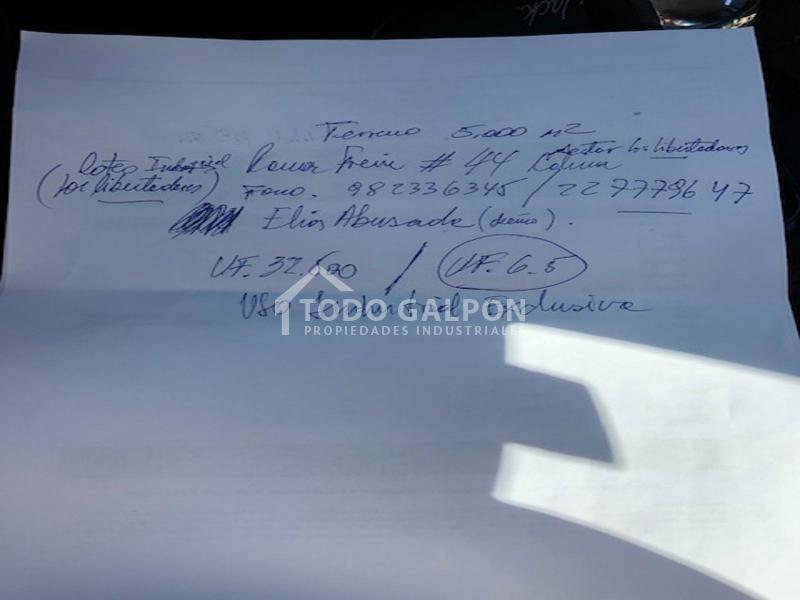 Jack
Terreno 5.000 m2
Loteo Industrial Ramon Freire # 44 Colina Sector los libertadores
(los libertadores) Fono. 982336345 / 22 7779647
Elias Abusada (dueño).
UF. 32.500 / UF. 6.5
USO Industrial Exclusivo
TODO GALPON
PROPIEDADES INDUSTRIALES